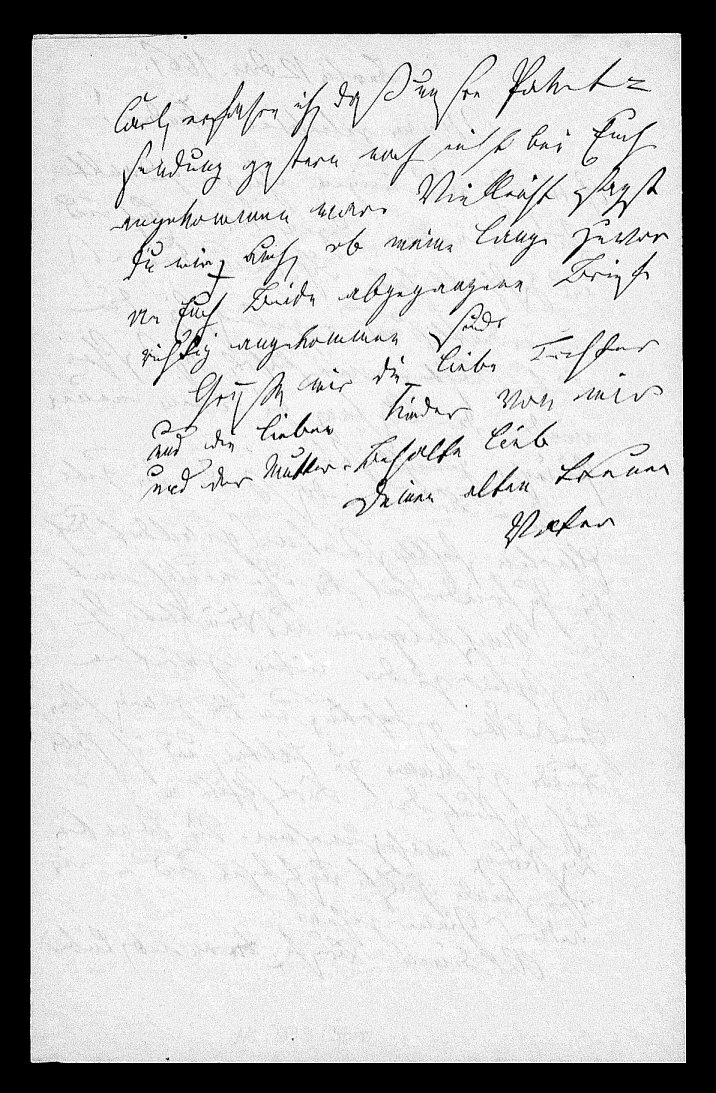 Carl, erfahre ich, daß unsre Paket-
sendung gestern noch nicht bei Euch
angekommen war. Vielleicht sagst
Du mir auch, ob meine lange zuvor
an Euch Beide abgegangene Briefe
richtig angekommen sind.
Grüße mir die liebe Tochter
und die lieben Kinder von mir
und der Mutter. Behalte lieb
Deinen alten treuen
Vater